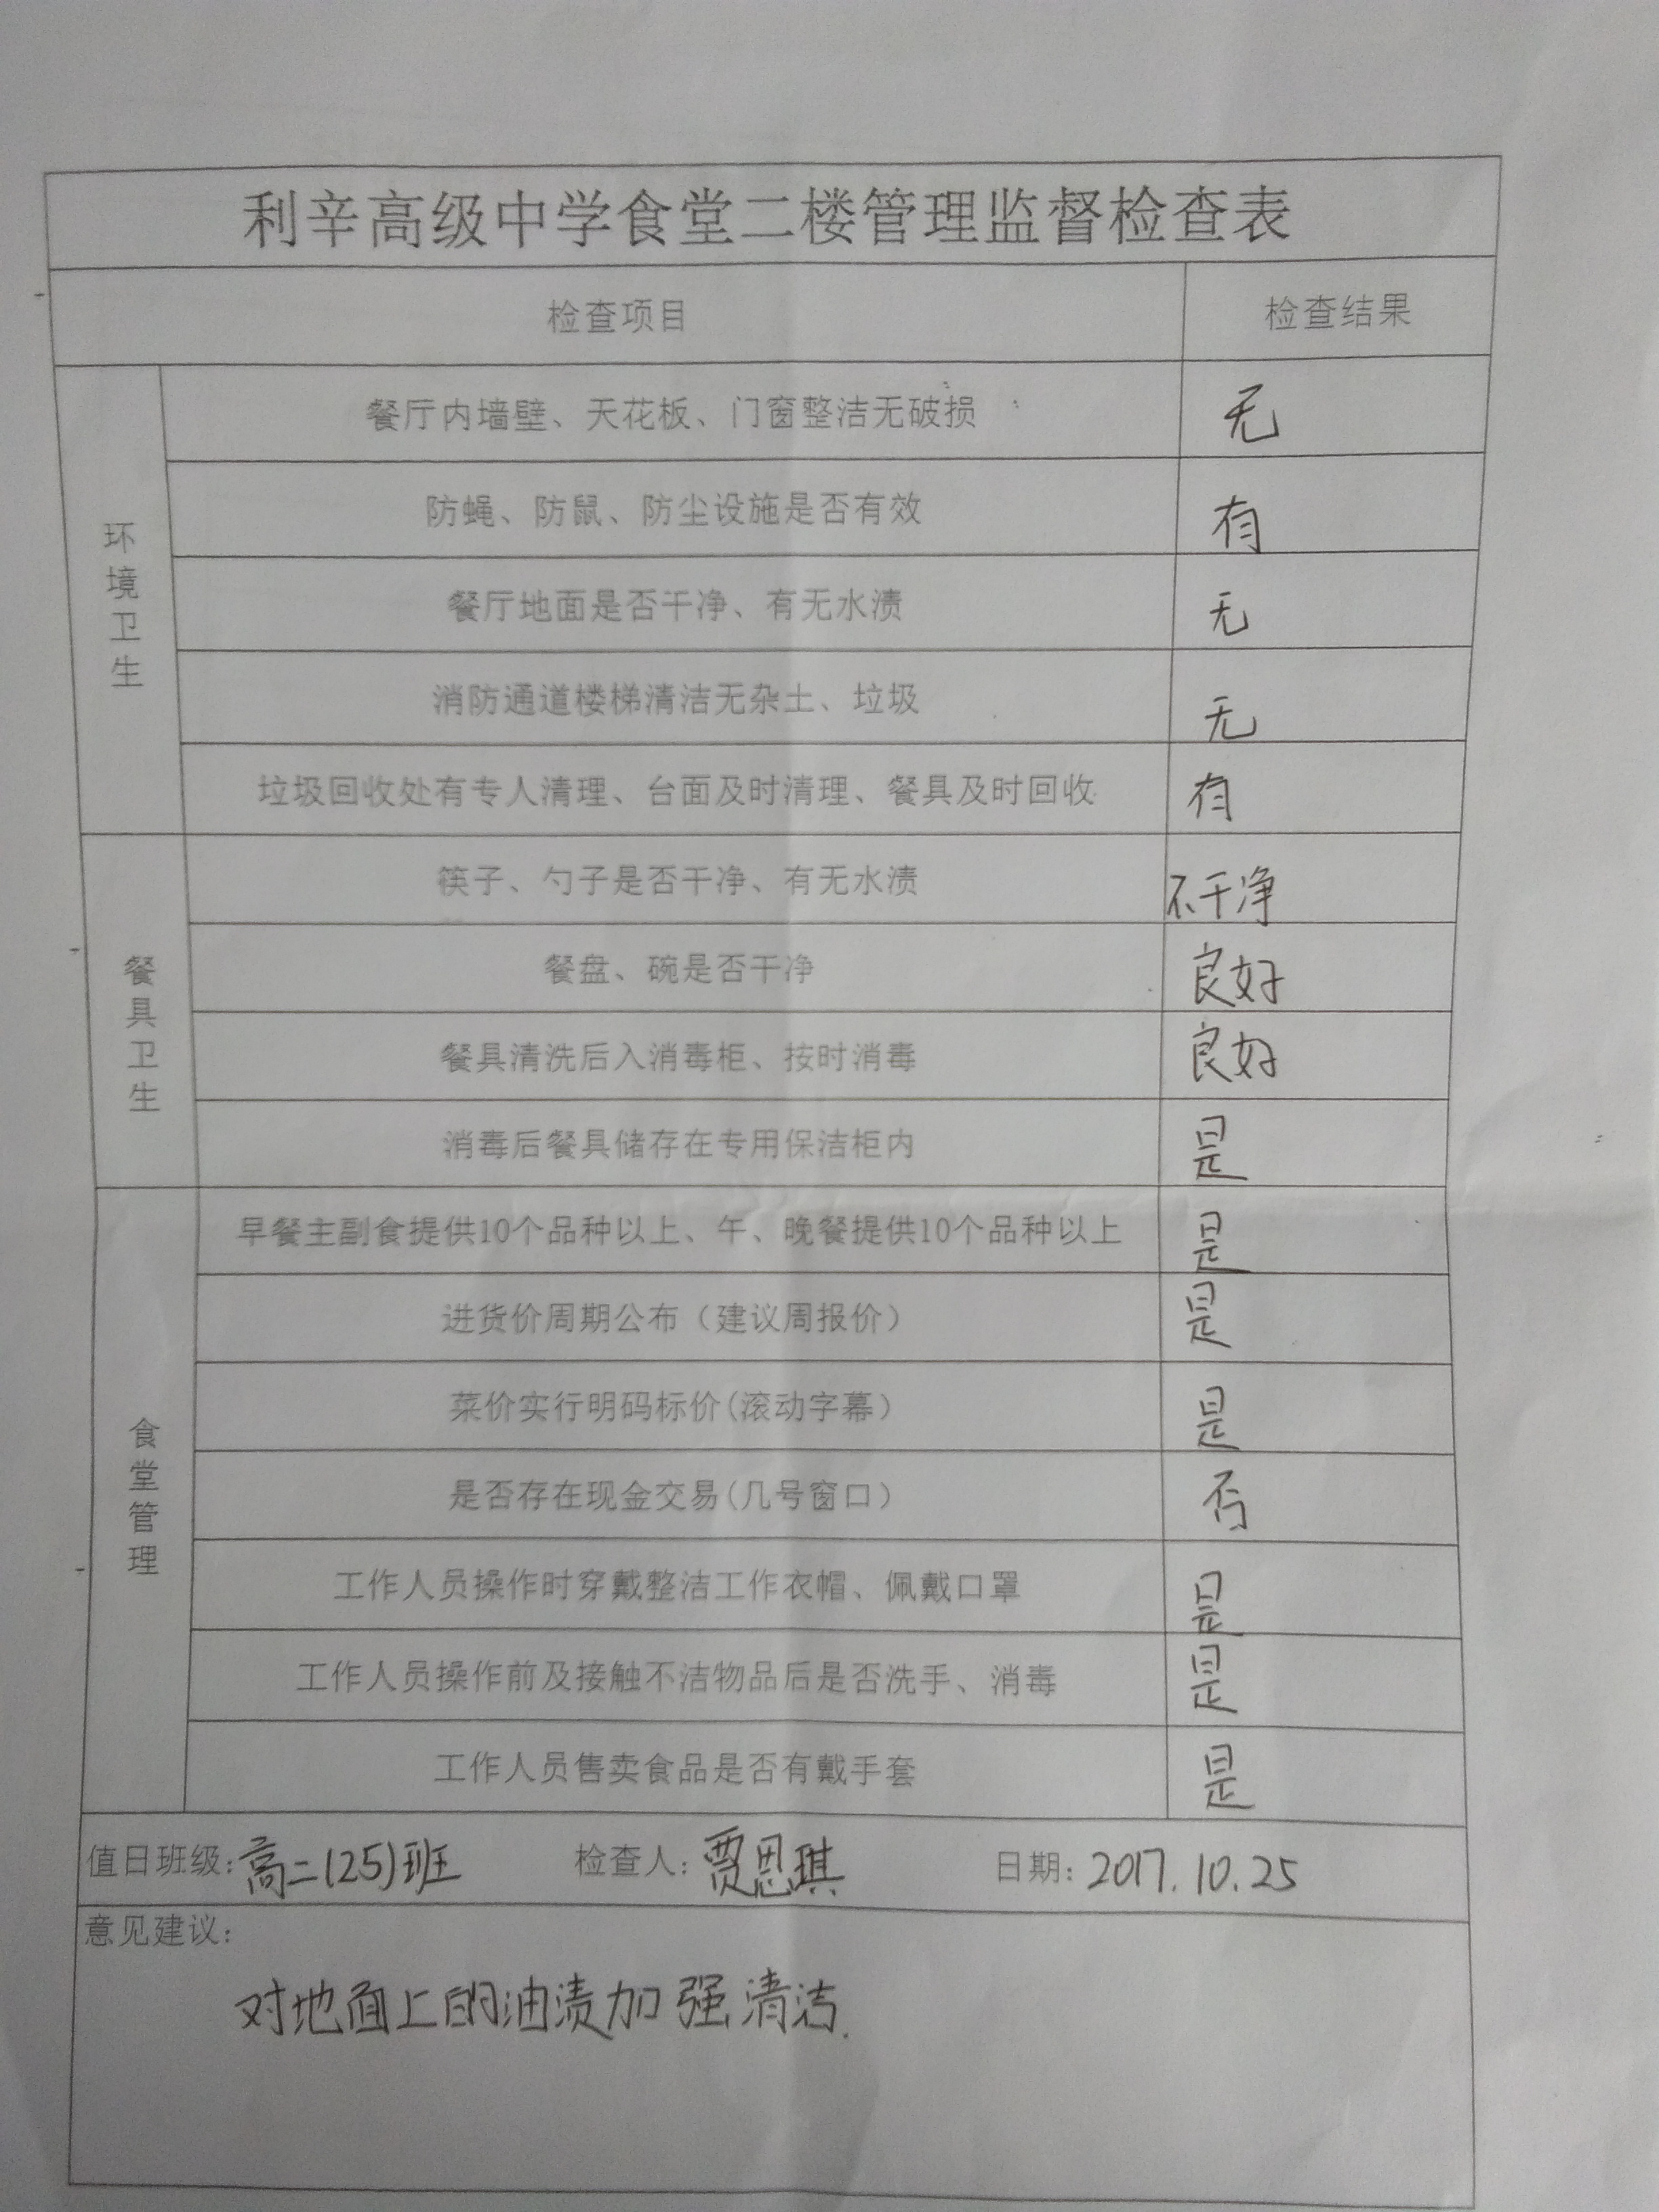 利辛高级中学食堂二楼管理监督检查表
检查项目 检查结果
环境卫生
餐厅内墙壁、天花板、门窗整洁无破损 无
防蝇、防鼠、防尘设施是否有效 有
餐厅地面是否干净、有无水渍 无
消防通道楼梯清洁无杂土、垃圾 无
垃圾回收处有专人清理、台面及时清理、餐具及时回收 有
餐具卫生
筷子、勺子是否干净、有无水渍 不干净
餐盘、碗是否干净 良好
餐具清洗后入消毒柜、按时消毒 良好
消毒后餐具储存在专用保洁柜内 是
食堂管理
早餐主副食提供10个品种以上、午、晚餐提供10个品种以上 是
进货价周期公布（建议周报价） 是
菜价实行明码标价(滚动字幕） 是
是否存在现金交易(几号窗口） 否
工作人员操作时穿戴整洁工作衣帽、佩戴口罩 是
工作人员操作前及接触不洁物品后是否洗手、消毒 是
工作人员售卖食品是否有戴手套 是
值日班级：高二(25)班 检查人：贾思琪 日期：2017.10.25
意见建议：
对地面上的油渍加强清洁.